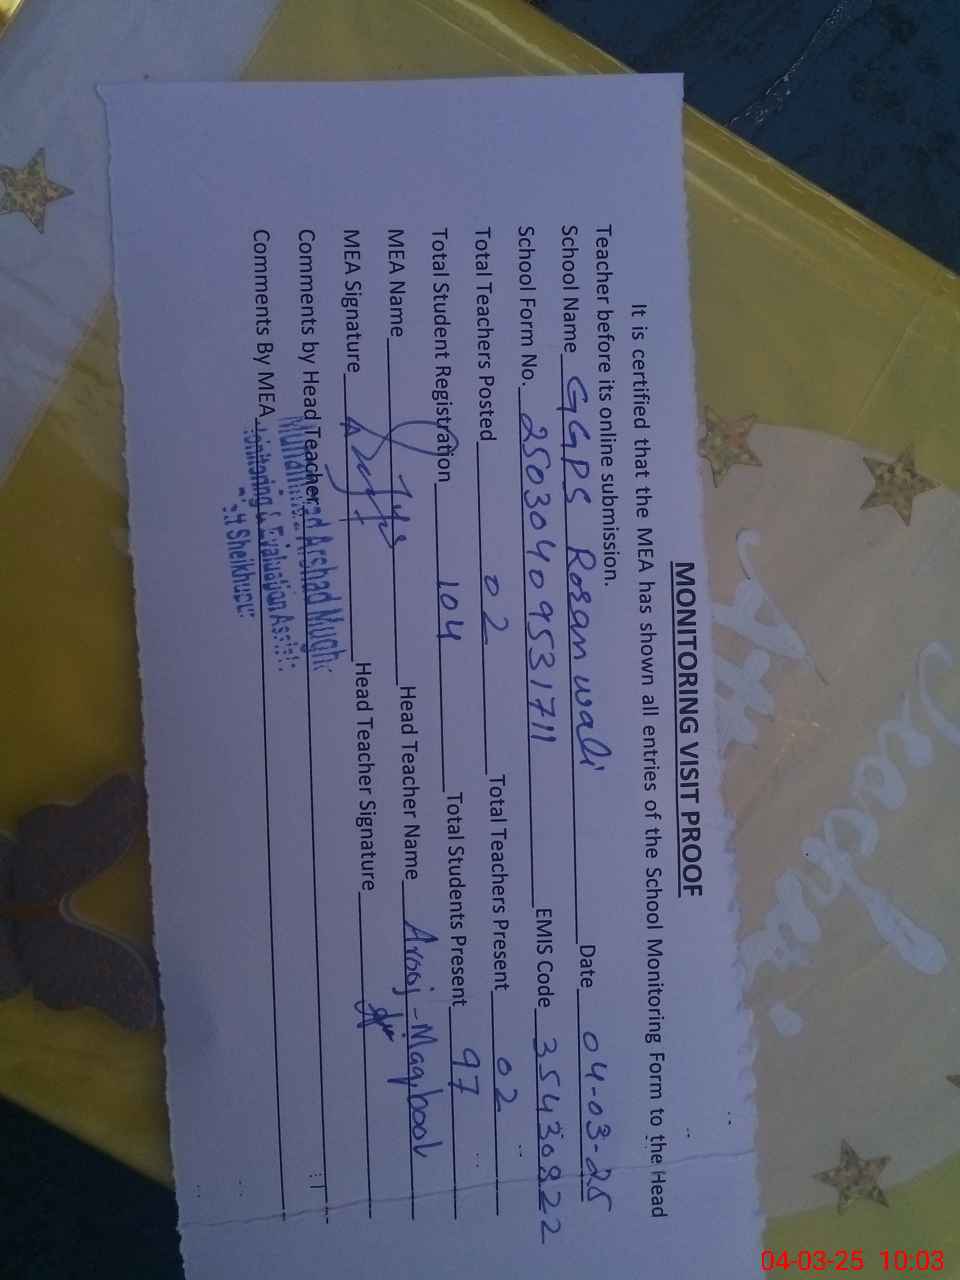 MONITORING VISIT PROOF
It is certified that the MEA has shown all entries of the School Monitoring Form to the Head
Teacher before its online submission.
School Name GGPS Rosan wali Date 04-03-25
School Form No. 25030409531711 EMIS Code 35430822
Total Teachers Posted 02 Total Teachers Present 02
Total Student Registration 104 Total Students Present 97
MEA Name Head Teacher Name Arooj - Maqbool
MEA Signature Head Teacher Signature
Comments by Head Teacher
Arshad Mugh
Comments By MEA
& Evaluation Assist
Sheikhupu
Teacher
04-03-25 10:03